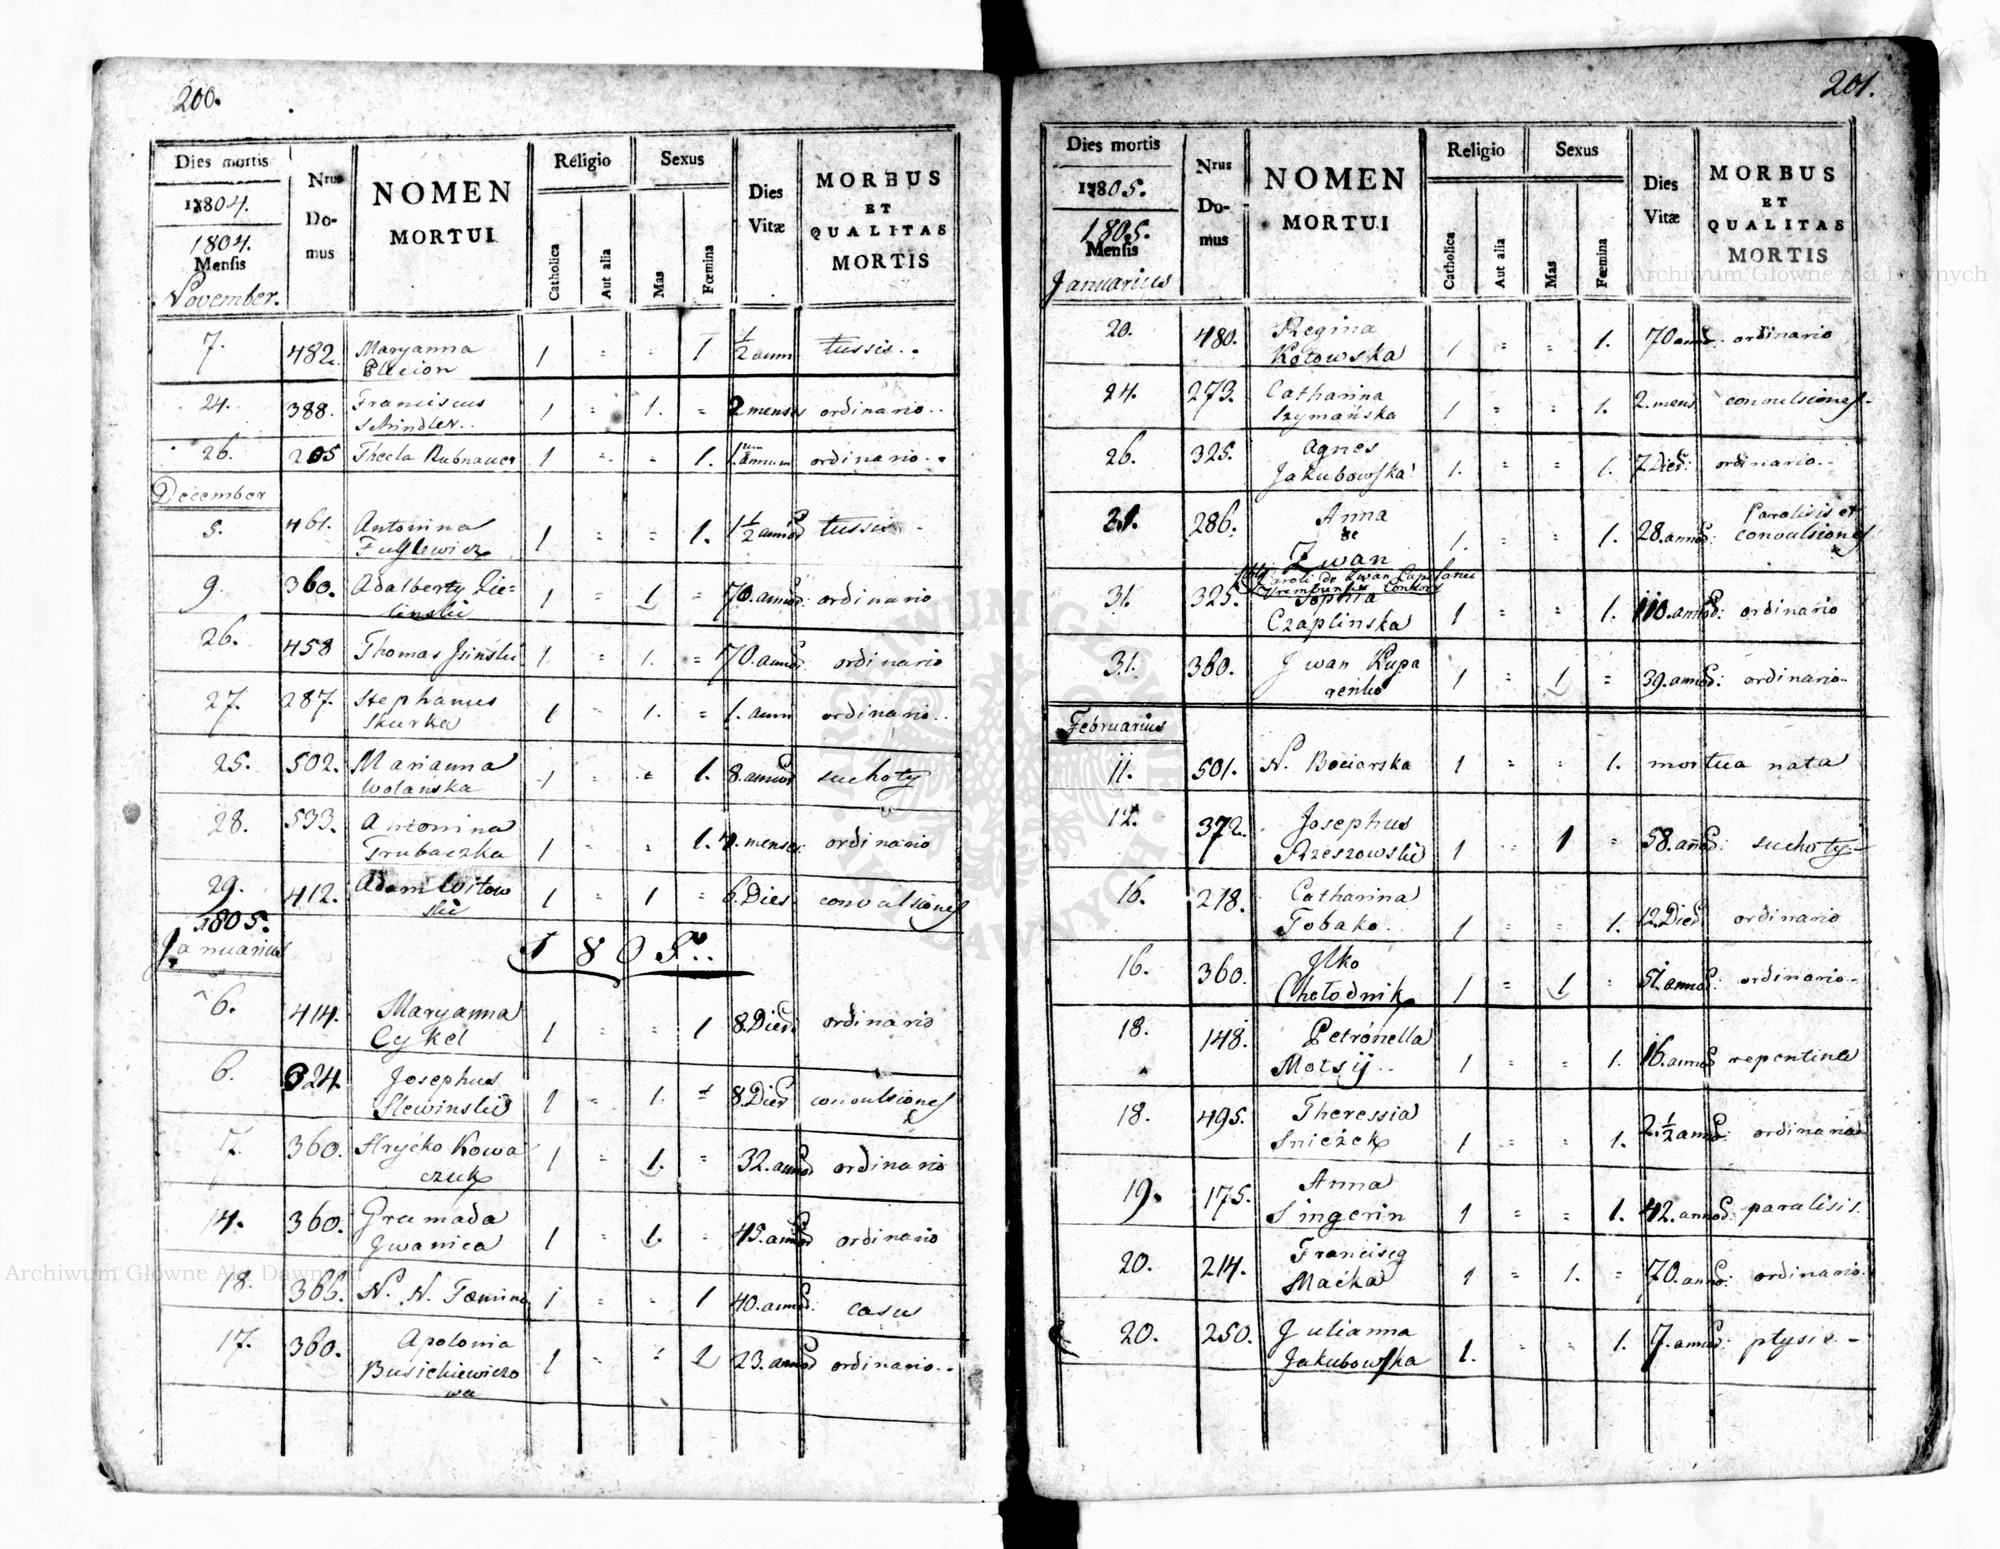 200.
Dies mortis
1804.
1804.
Mensis
November.
Nrus
Do-
mus
NOMEN
MORTUI
Religio
Catholica
Aut alia
Sexus
Mas
Fœmina
Dies
Vitæ
MORBUS
ET
QUALITAS
MORTIS
7. 482. Maryanna 1 = = 1 ½ anni tussis..
24. 388. Franciscus 1 = 1. = 2 menses ordinario..
Schindler..
26. 205 Thecla 1 = = 1. ordinario..
December
5. 461. Antonina 1 = = 1. 1½ annor tussis
9. 360. Adalberty Zie= 1 = 1 = 70. annor: ordinario
linski
26. 458 Thomas 1. = 1. = 70. annor: ordinario
27. 287. Stephanus 1 = 1. = 1. anni ordinario..
Skurka
25. 502. Marianna 1 = = 1. 8. annor suchoty
Wolańska
28. 533. Antonina 1 = = 1. menses ordinario
Trubaczka
29. 412. Adam Witow 1 = 1 = 6. Dies convulsiones
ski
1805.
Januarius
1805..
6. 414. Maryanna 1 = = 1 8. Dies ordinario
Cykel
6. 324 Josephus 1 = 1. = 8. Dies convulsiones
Slewinski
7. 360. Hryćko Kowa 1 = 1. = 32. annor ordinario
czuk
14. 360. Gramada 1 = 1. = 45. annor ordinario
Jwanica
18. 366. N. N. Fœmina 1 = = 1 40. annor: casu
17. 360. Apolonia 1 = = 1 23. annor ordinario..
Busickiewiczo
wa
201.
Dies mortis
1805.
1805.
Mensis
Januarius
Nrus
Do-
mus
NOMEN
MORTUI
Religio
Catholica
Aut alia
Sexus
Mas
Fœmina
Dies
Vitæ
MORBUS
ET
QUALITAS
MORTIS
20. 480. Regina 1 = = 1. 70 annor: ordinario
Kotowska
24. 273. Catharina 1 = = 1. 2. mens. convulsiones.
Szymańska
26. 325. Agnes 1. = = 1. 7. Dier: ordinario..
Jakubowska
286. Anna 1. = = 1. 28. annor: Paralisis et
de convulsiones
Zwan
31. 325. Sophia 1 = = 1. 110. annor: ordinario
Czaplinska
31. 360. Jwan Kupa 1 = 1 = 39. annor: ordinario..
renko
Februarius
11. 501. N. Bociarska 1 = = 1. mortua nata
12. 372. Josephus 1 = 1 = 58. annor: suchoty
Rzeszowski
16. 218. Catharina 1 = = 1. 12. Dies ordinario
Tobako.
16. 360. Jlko 1 = 1 = 51. annor: ordinario..
Chołodnik
18. 148. Petronella 1 = = 1. 16. annor repentina
Motsij..
18. 495. Theressia 1 = = 1. 2.½ annor: ordinaria
Snieżek
19. 175. Anna 1 = = 1. 42. annor: paralisis.
Singerin
20. 214. Francisc9 1 = 1. = 70. annor: ordinario.
Maćka
20. 250. Julianna 1. = = 1. 7. annor: ptysis..
Jakubowska
ARCHIWUM GŁÓWNE AKT DAWNYCH
Archiwum Główne Akt Dawnych
Archiwum Główne Akt Dawnych